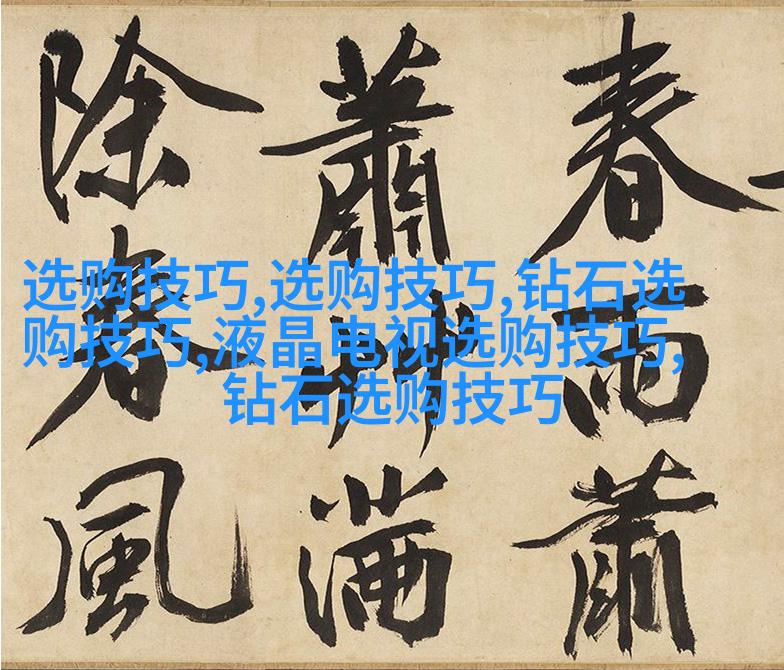 春雨蕭
蕭艸滿
除春風
选购技巧,选购技巧,钻石选
购技巧,液晶电视选购技巧,
钻石选购技巧